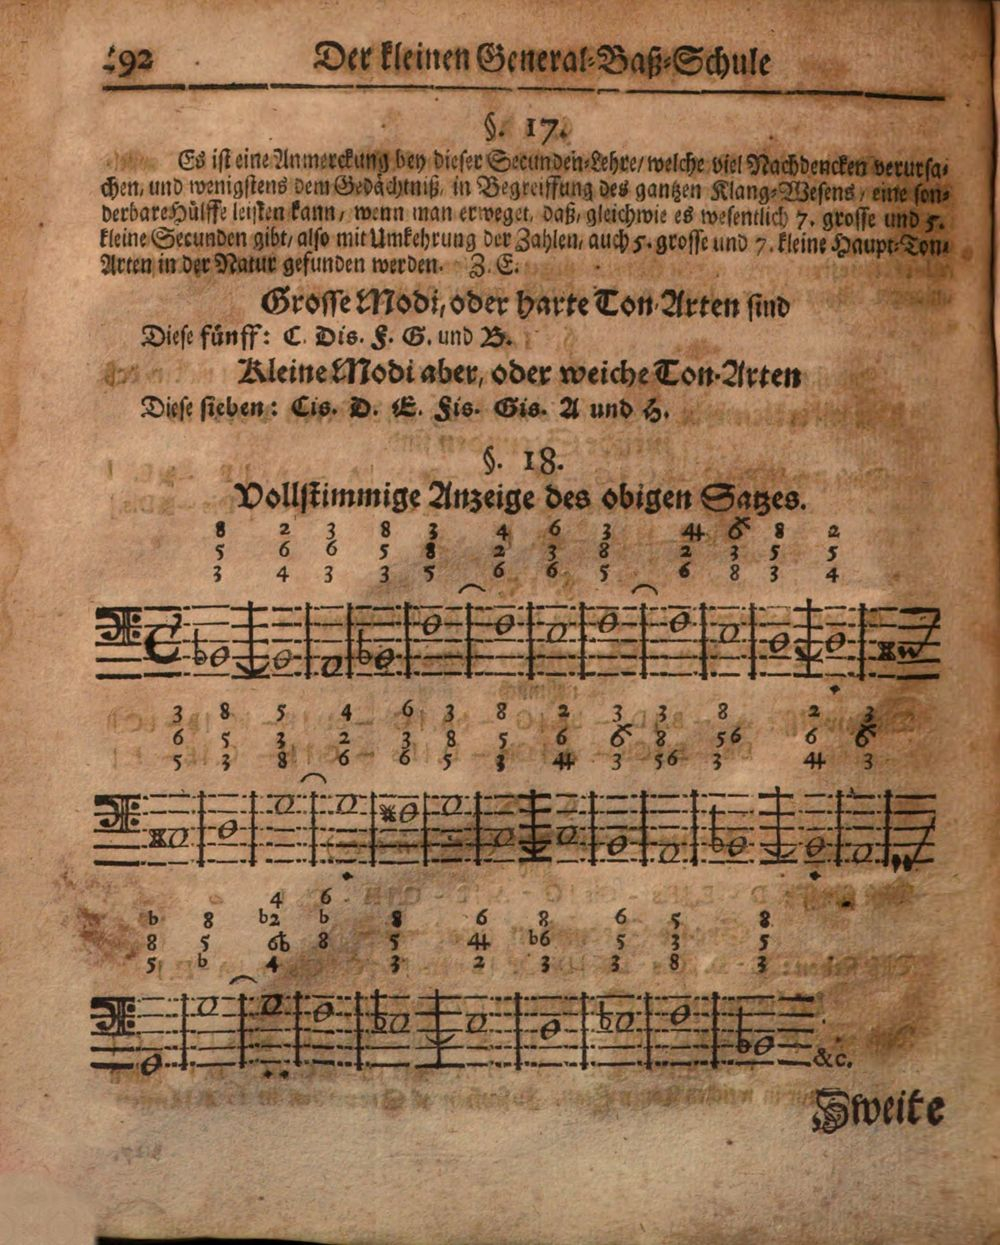 192 Der kleinen General-Baß-Schule
§. 17.
Es ist eine Anmerckung bey dieser Secunden-Lehre/ welche viel Nachdencken verursa-
chen, und wenigstens dem Gedächtniß, in Begreiffung des gantzen Klang-Wesens, eine son-
derbare Hülffe leisten kann, wenn man erweget, daß, gleichwie es wesentlich 7. grosse und 5.
kleine Secunden gibt, also mit Umkehrung der Zahlen, auch 5. grosse und 7. kleine Haupt-Ton-
Arten in der Natur gefunden werden. Z. E.
Grosse Modi, oder harte Ton-Arten sind
Diese fünff: C. Dis. F. G. und B.
Kleine Modi aber, oder weiche Ton-Arten
Diese sieben: Cis. D. E. Fis. Gis. A und H.
§. 18.
Vollstimmige Anzeige des obigen Satzes.
8 2 3 8 3 4 6 3 44 6 8 2
5 6 6 5 8 2 3 8 2 3 5 5
3 4 3 3 5 6 6 5 6 8 3 4
3 8 5 4 6 3 8 2 3 3 8 2 3
6 5 3 2 3 8 5 6 6 8 56 6 6
5 3 8 6 6 5 3 44 3 56 3 44 3
4 6
b 8 b2 b 8 6 8 6 5 8
8 5 6b 8 5 44 b6 5 3 5
5 b 4 3 2 3 3 8 3
&c.
Zweite